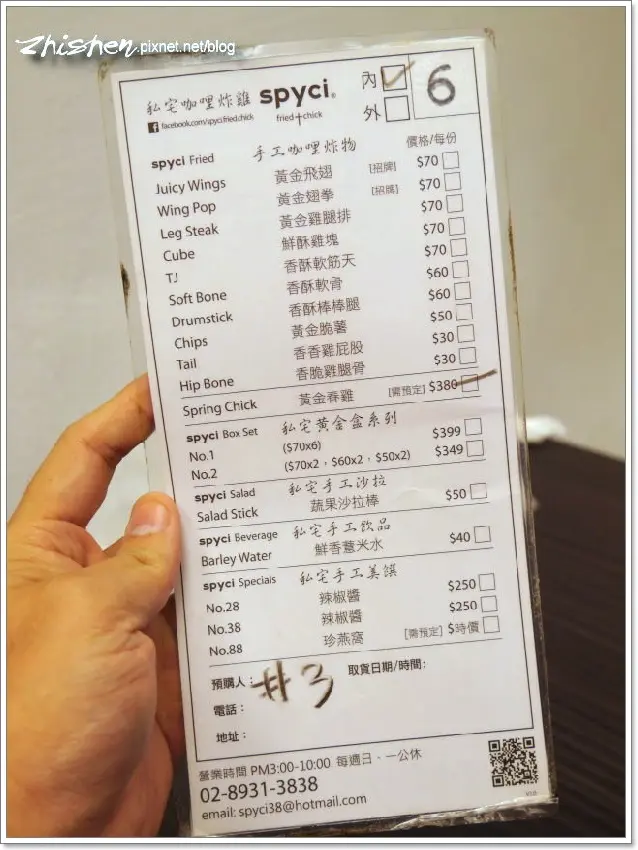 zhishen.pixnet.net/blog
私宅咖哩炸雞 spyci® 內 6
facebook.com/spyci.fried.chick fried chick 外
spyci Fried 手工咖哩炸物 價格/每份
Juicy Wings 黃金飛翅 [招牌] $70
Wing Pop 黃金翅拳 [招牌] $70
Leg Steak 黃金雞腿排 $70
Cube 鮮酥雞塊 $70
TJ 香酥軟筋天 $70
Soft Bone 香酥軟骨 $60
Drumstick 香酥棒棒腿 $60
Chips 黃金脆薯 $50
Tail 香香雞屁股 $30
Hip Bone 香脆雞腿骨 $30
Spring Chick 黃金春雞 [需預定] $380
spyci Box Set 私宅黃金盒系列
No.1 ($70x6) $399
No.2 ($70x2，$60x2，$50x2) $349
spyci Salad 私宅手工沙拉
Salad Stick 蔬果沙拉棒 $50
spyci Beverage 私宅手工飲品
Barley Water 鮮香薏米水 $40
spyci Specials 私宅手工美饌
No.28 辣椒醬 $250
No.38 辣椒醬 $250
No.88 珍燕窩 [需預定] $時價
預購人： #3 取貨日期/時間：
電話：
地址：
營業時間 PM3:00-10:00 每週日、一公休
02-8931-3838
email: spyci38@hotmail.com